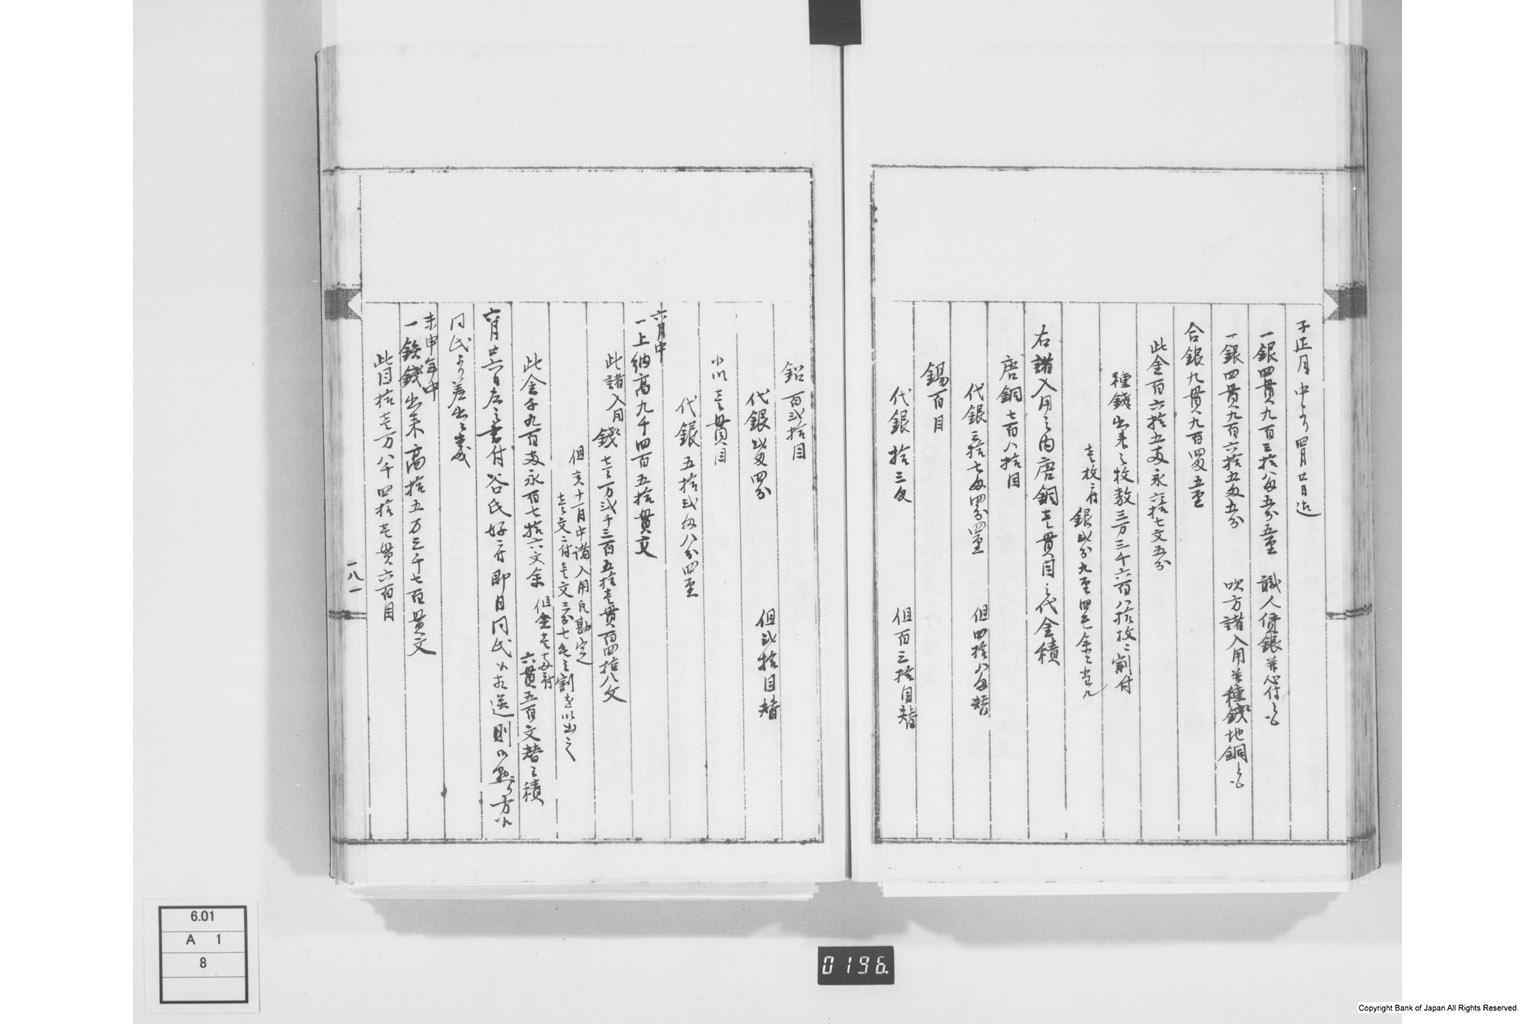 子正月中ゟ四月廿日迄
一銀四貫九百三拾八匁五分五厘 職人賃銀并心付
一銀四貫九百六拾五匁五分 吹方諸入用并種錢地銅
合銀九貫九百四匁五厘
此金百六拾五両永六拾七文五分
種錢出来之枚数三万三千六百八拾枚ニ割付
壱枚ニ付銀弐分九厘四毛余ニ当ル
右諸入用之内唐銅壱貫目之代金積
唐銅七百八拾目
代銀三拾七匁四分四厘 但四拾八匁替
錫百目
代銀拾三匁 但百三拾目替
鉛百弐拾目
代銀弐匁四分 但弐拾目替
小以壱貫目
代銀五拾弐匁八分四厘
六月中
一上納高九千四百五拾貫文
此諸入用錢壱万弐千三百五拾壱貫百四拾八文
但亥十月中諸入用凡勘定
壱文ニ付壱文三分七毛之割を以出之
此金千九百両永百七拾六文余 但金壱両ニ付
六貫五百文替之積
六月廿六日左之書付谷氏好ニ付即日同氏
同氏ゟ差出之
未申年中
一鉄錢出来高拾五万三千七百貫文
此目拾壱万八千四拾壱貫六百目
一八一
6.01
A 1
8
0196.
Copyright Bank of Japan All Rights Reserved.